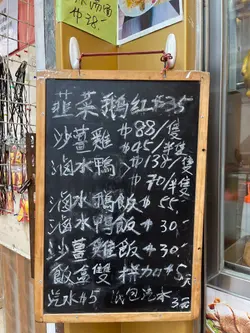 $38.-
韮菜鵝紅$35
沙薑雞 $88/隻
$45/半隻
滷水鴨 $138/隻
$70/半隻
滷水鵝飯$55.
滷水鴨飯$30.-
沙薑雞飯$30.-
飯盒雙拼加$5元
汽水$5 包汽水3元